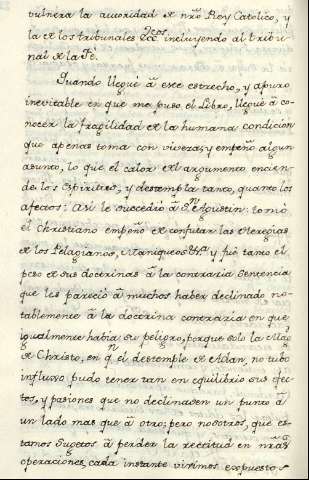 vulnera la autoridad de nrõ Rey Catolico, y
la de los tribunales ecc.cos incluyendo al tribu-
nal de la Fè.
Quando lleguè à este estrecho, y apuro
inevitable en que me puso el Libro, lleguè à co-
nocer la fragilidad de la humana condicion
que apenas toma con viveza, y empeño algun
asunto, lo que el calor del argumento encien-
de los Espiritus, y destempla tanto, quanto los
afectos: Asi le succediò à S.n Agustin: tomò
el Christiano empeño de confutar las Heregias
de los Pelagianos, Maniqueos &.a y fuè tanto el
peso de sus doctrinas à la contraria Sentencia
que les pareciò à muchos haber declinado no-
tablemente à la doctrina contraria en que
igualmente habia su peligro, porque solo la
de Christo, en q.n el destemple de Adan, no tubo
influxo pudo tener tan en equilibrio sus afec-
tos, y pasiones que no declinasen un punto à
un lado mas que à otro; pero nosotros, que es-
tamos Sugetos à perder la rectitud en nrãs
operaciones, cada instante vivimos expuestos